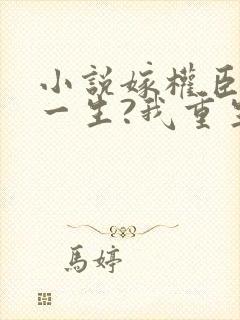 小說嫁權臣
一生?我重生
馬婷